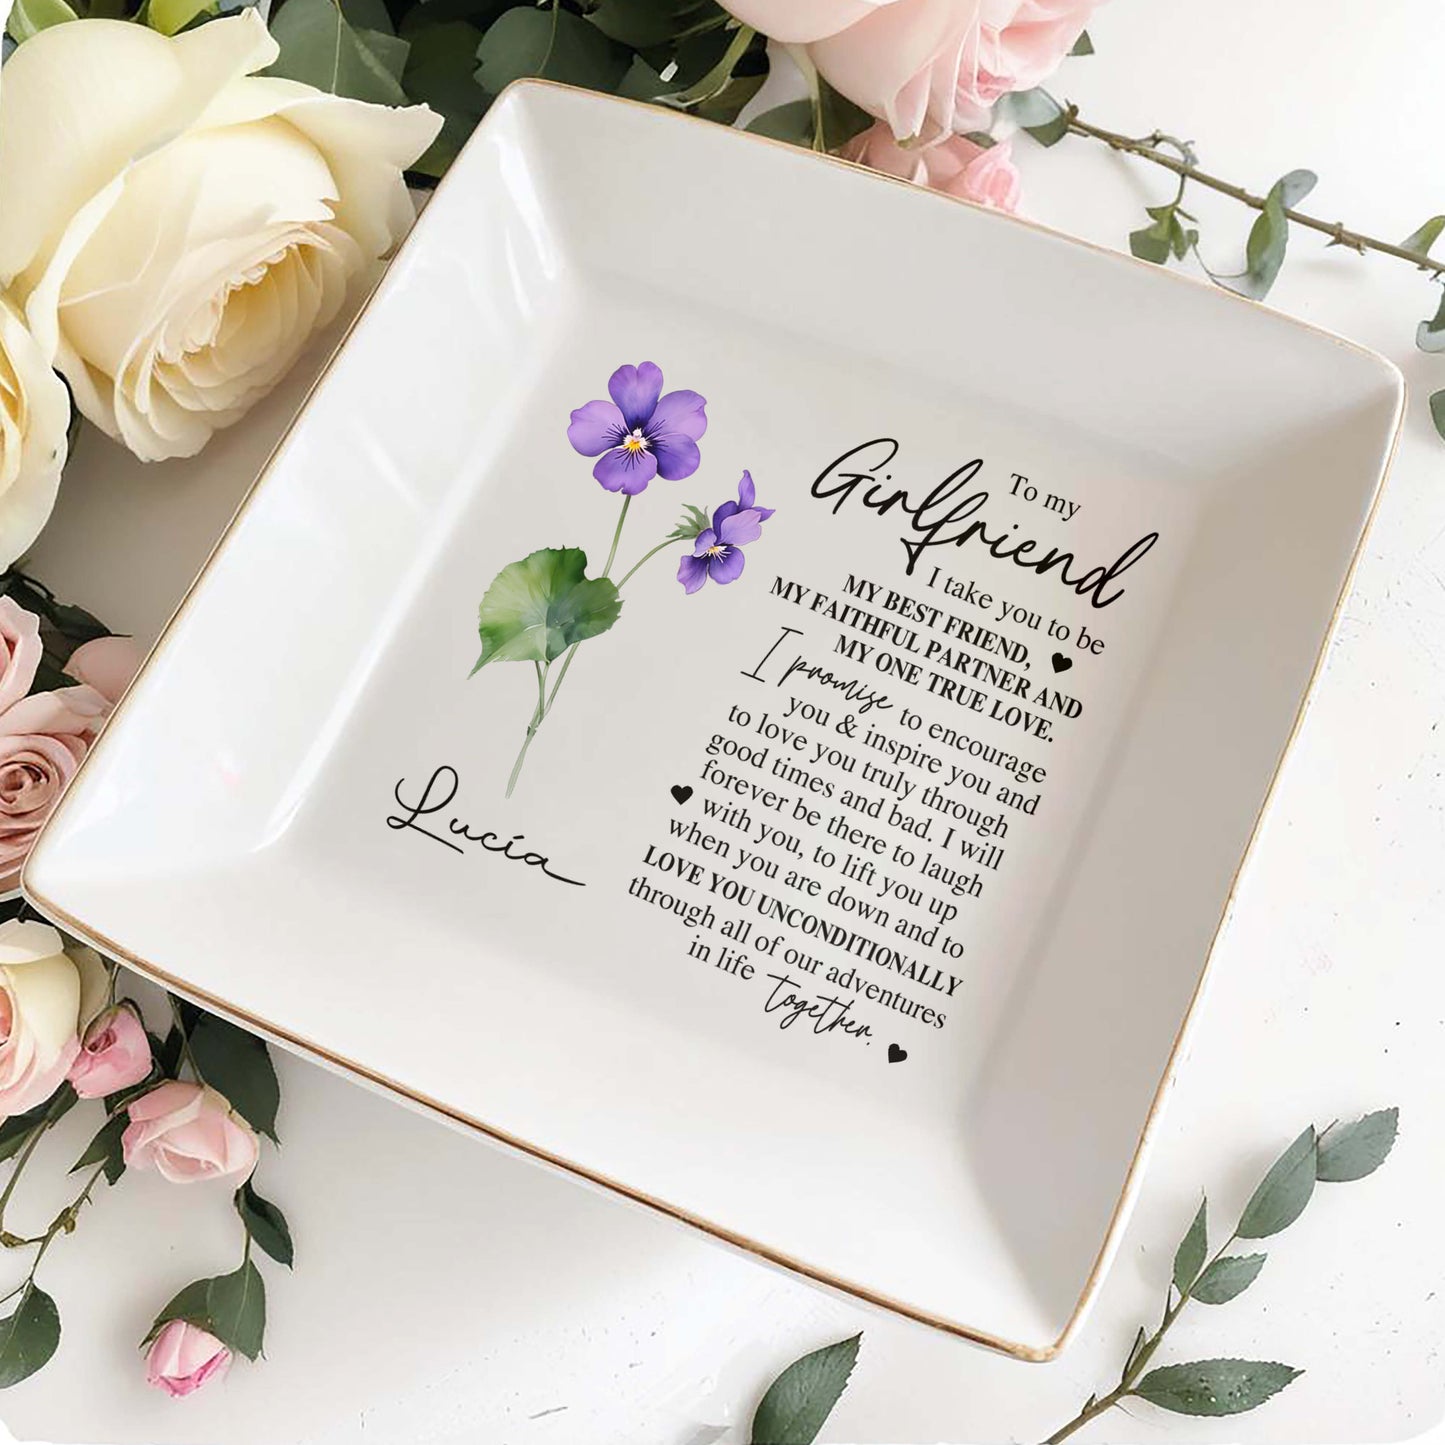 To my
Girlfriend
I take you to be
MY BEST FRIEND,
MY FAITHFUL PARTNER AND
MY ONE TRUE LOVE.
I promise to encourage
you & inspire you and
to love you truly through
good times and bad. I will
forever be there to laugh
with you, to lift you up
when you are down and to
LOVE YOU UNCONDITIONALLY
through all of our adventures
in life together.
Lucía